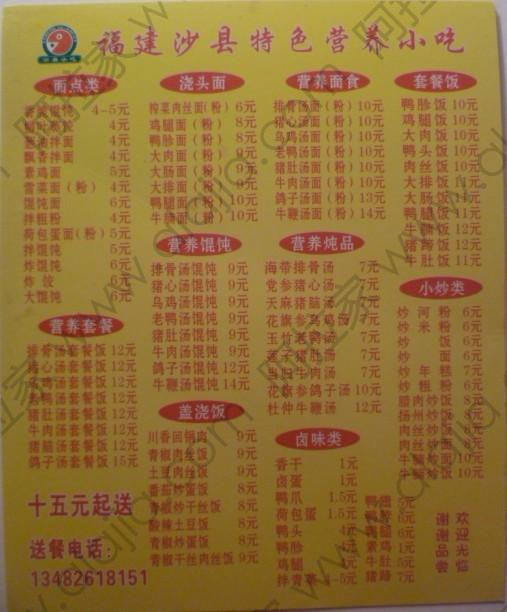 福建沙县特色营养小吃
沙县小吃
面点类
4-5元
4元
葱油拌面 4元
飘香拌面 4元
素鸡面 5元
雪菜面(粉) 4元
馄饨面 6元
拌粗粉 4元
荷包蛋面(粉) 5元
拌馄饨 5元
炸馄饨 6元
炸饺 6元
大馄饨 6元
浇头面
榨菜肉丝面(粉) 6元
鸡腿面(粉) 8元
鸭腿面(粉) 8元
大肉面(粉) 9元
大肠面(粉) 9元
大排面(粉) 9元
鸭腿面(粉) 10元
牛肠面(粉) 10元
营养面食
排骨汤面(粉) 10元
猪心汤面(粉) 10元
乌鸡汤面(粉) 10元
老鸭汤面(粉) 10元
猪肚汤面(粉) 10元
牛肉汤面(粉) 10元
鸽子汤面(粉) 13元
牛鞭汤面(粉) 14元
套餐饭
鸭胗饭 10元
鸡腿饭 10元
大肉饭 10元
鸭头饭 10元
肉丝饭 10元
大排饭 11元
大肠饭 11元
鸭腿饭 11元
牛腩饭 12元
猪蹄饭 12元
牛肚饭 11元
营养馄饨
排骨汤馄饨 9元
猪心汤馄饨 9元
乌鸡汤馄饨 9元
老鸭汤馄饨 9元
猪肚汤馄饨 9元
牛肉汤馄饨 9元
鸽子汤馄饨 12元
牛鞭汤馄饨 14元
营养炖品
海带排骨汤 7元
党参猪心汤 7元
天麻猪脑汤 7元
花旗参乌鸡汤 7元
玉竹老鸭汤 7元
莲子猪肚汤 7元
当归牛肉汤 7元
花旗参鸽子汤 10元
杜仲牛鞭汤 12元
小炒类
炒河粉 6元
炒米粉 6元
炒饭 6元
炒面 6元
炒年糕 7元
炒粗粉 6元
腊肉炒饭 8元
扬州炒饭 8元
肉丝炒饭 8元
肉丝炒面 8元
牛肉炒饭 10元
牛腩炒饭 10元
营养套餐
排骨汤套餐饭 12元
猪心汤套餐饭 12元
乌鸡汤套餐饭 12元
老鸭汤套餐饭 12元
猪肚汤套餐饭 12元
牛肉汤套餐饭 12元
猪脑汤套餐饭 12元
鸽子汤套餐饭 15元
盖浇饭
川香回锅肉 9元
青椒肉丝饭 9元
土豆肉丝饭 9元
番茄炒蛋饭 8元
青椒炒干丝饭 8元
酸辣土豆饭 8元
青椒炒蛋饭 8元
青椒干丝肉丝饭 9元
卤味类
香干 1元
卤蛋 1元
鸭爪 1.5元
荷包蛋 1.5元
鸭头 4元
鸭胗 4元
鸡腿 4元
拌青菜 4-5元
5元
6元
鸭腿 6元
素鸡 1元
牛肚 6元
猪蹄 7元
欢迎光临
谢谢品尝
十五元起送
送餐电话:
13482618151
阿拉家
www.alajia.com